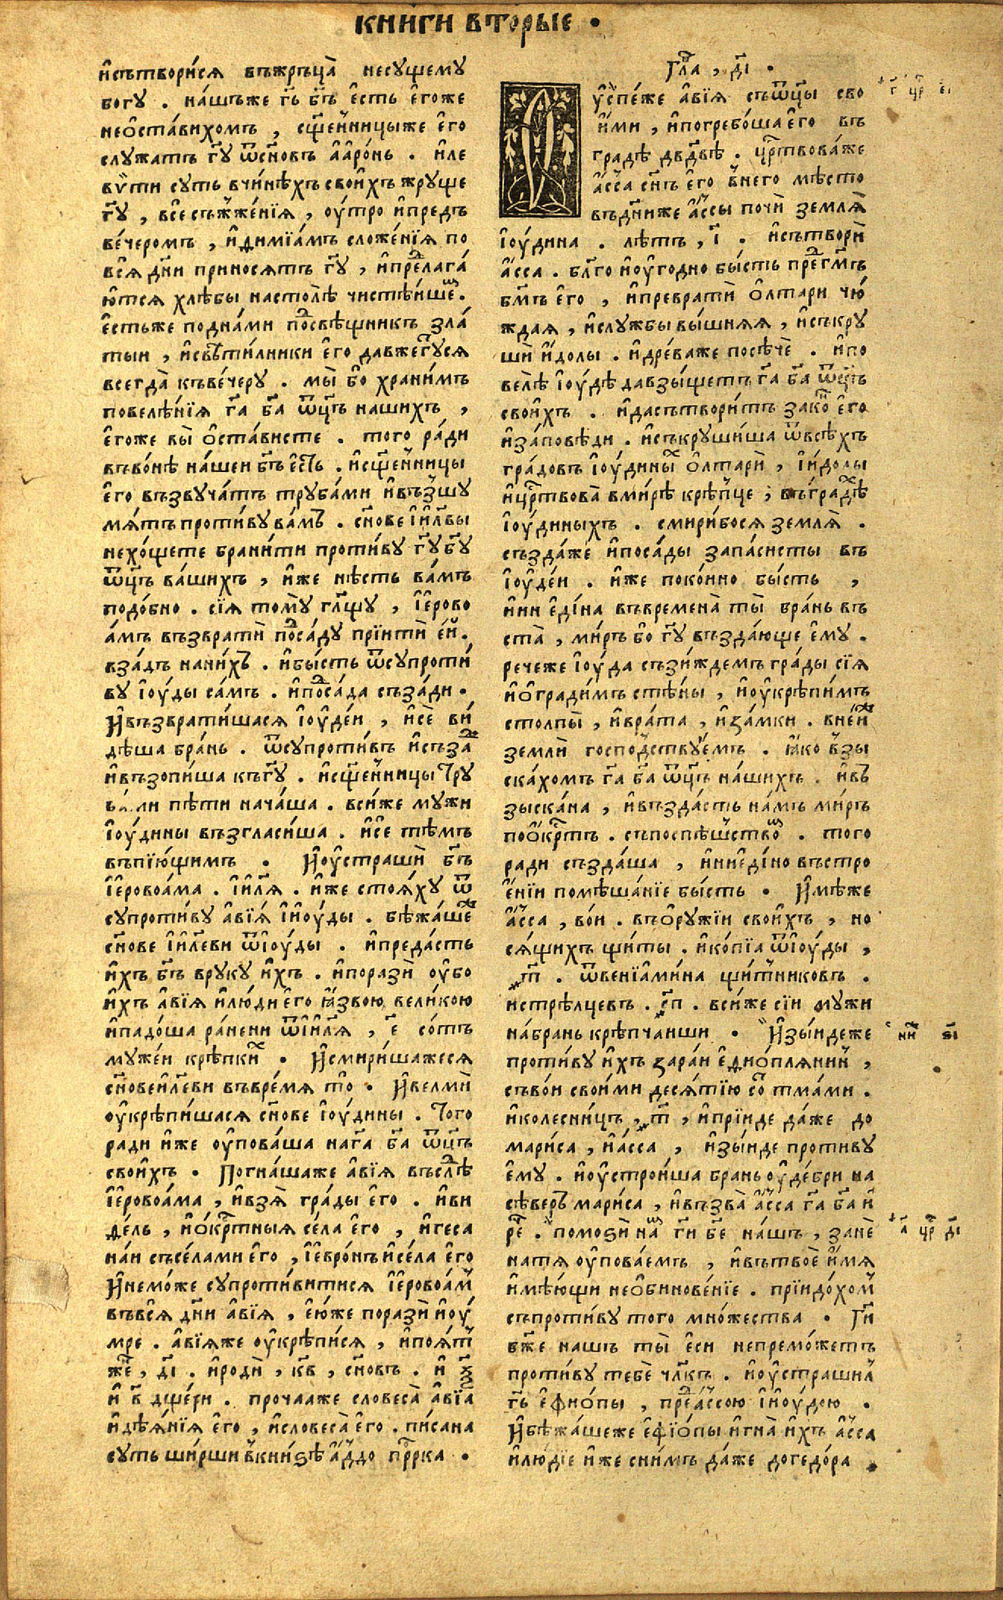 книги вторые .
и҆сътвори́сѧ въжръца̀ несущему
богу . на́шъже гъ҃ бъ҃ есть е҆гоже
неѡста́вихомъ , сщ҃е́нницыже его
служатъ гу҃ ѿсн҃овъ а҆аро́нь . и҆ле
вѵти суть вчинѣхъ свои҆хъ жруще
гу҃ , всѐ съжже́нїѧ , оу҆тро и҆предъ
ве́черомъ , и҆димїа́мъ сложе́нїѧ по
всѧ̀ дн҃и приносѧтъ гу҃ , и҆предлага́
ю҆тсѧ хлѣбы настолѣ̀ чистѣ́ише .
е҆стьже поднами посвѣщникъ зла
тыи , и҆свѣтилники его давжегу́сѧ
всегда̀ къве́черу . мы̀ бо хранимъ
повелѣ́нїѧ га҃ ба҃ ѿц҃ъ нашихъ ,
е҆гоже вы̀ ѡ҆ста́висте . того ра́ди
въво́нѣ на́шеи бъ҃ е҆сть . и҆сщ҃е́нницы
его възвуча́тъ трубами и҆възшу
мѧ́тъ противу ва́мъ . сн҃ове і҆и҃лвы
нехо́щете бранити проти́ву гу҃ бу҃
ѿц҃ъ ва́шихъ , и҆же нѣсть ва́мъ
подо́бно . сїѧ тому̀ гл҃щу , і҆е҆рово
а́мъ възвратѝ поса́ду прїитѝ е҆й .
вза́дъ наихъ . и҆бы́сть ѿсупроти́
ву і҆оу́ды са́мъ . и҆поса́да съза́ди .
И҆възврати́шасѧ і҆оу́деи , и҆сѐ ви́
дѣша бра́нь . ѿсупроти́въ и҆съза
и҆възопи́ша къгу҃ . и҆сщ҃е́нницы тру
ба́ми пѣти нача́ша . вси́же мужи
і҆оу́дины възгласи́ша . и҆сѐ тѣ́мъ
въпїю́щимъ . И҆оу҆страшѝ бъ҃
і҆е҆ровоа́ма . і҆и҃лѧ . и҆же стоѧ́ху ѿ
супроти́ву а҆вїѧ́ і҆и҆оу́ды . бѣжа́ше
сн҃ове і҆и҃леви ѿі҆оу́ды . и҆преда́сть
и҆хъ бъ҃ вруку и҆хъ . и҆поразѝ оу҆бо
и҆хъ а҆вїѧ и҆лю́ди его ꙗ҆́звою вели́кою
и҆падо́ша ра́нени ѿі҆и҃лѧ , е҃ со́тъ
муже́и крѣпких . И҆смири́шажесѧ
сн҃овеи҃леви въвре́мѧ то . И҆велмѝ
оу҆крѣпи́шасѧ сн҃ове і҆оу́дины . Того
ради и҆же оу҆пова́ша нага҃ ба҃ ѿц҃ъ
свои҆хъ . Погна́шаже а҆вїѧ въслѣ
і҆е҆ровоа́ма , и҆взѧ̀ гра́ды его . и҆ви
дѣль , и҆ѡ҆крстныѧ се́ла его , и҆геса
на́и съсе́лами его , і҆евро́нъ и҆се́ла его
И҆немо́же супроти́витисѧ і҆е҆ровоа́м
въвсѧ̀ дн҃и а҆вїѧ , е҆ю́же поразѝ и҆оу҆
мре . а҆вїѧже оу҆крѣпи́сѧ , и҆поѧ́т
же , д҃і . и҆родѝ , к҃в , сн҃овъ . и҆ ѕ҃
и҆ в҃ дще́ри . прочааже словеса̀ а҆вїа
и҆дѣѧ́нїѧ его , и҆словеса̀ его . пи́сана
суть ши́рши вкни́ѕѣ а҆́ддо прр҃ка .
Гла , д҃і .
Оу҆спе́же а҆вїѧ съѿц҃ы сво
и҆́ми , и҆погребо́ша его въ
градѣ дв҃двѣ . црт҃вова́же
а҆́сса сн҃ъ его внего мѣсто
въдн҃иже а҆́ссы почѝ землѧ̀
і҆оу́дина . лѣтъ , і҃ . и҆сътворѝ
а҆́сса . бл҃го и҆оу҆го́дно бы́сть предгм҃ъ
бм҃ъ его , и҆превратѝ ѻ҆лтари чю
ждаѧ , и҆слу́жбы вы́шнѧѧ , и҆съкру
шѝ и҆́долы . и҆дре́важе посѣчѐ . и҆по
велѣ̀ і҆оу́дѣ давзы́щетъ га҃ ба҃ ѿц҃ъ
свои҆хъ . и҆дасътвори́тъ зако его
и҆за́повѣди . и҆съкруши́ша ѿвсѣ́хъ
гра́довъ і҆оу́дины ѻ҆лтарѝ , і҆и҆́долы
и҆црт҃вова̀ вми́рѣ крѣпце , въградѣ
і҆оу́диныхъ . смири́босѧ землѧ̀ .
създа́же и҆поса́ды запа́систы въ
і҆оу́деи . и҆же поко́ино бы́сть ,
и҆ни е҆ди́на въвремена̀ ты̀ брань въ
ста̀ , ми́ръ бо гу҃ въздаю́ще е҆му .
речеже і҆оу́да съзи́ждемъ гра́ды сїѧ
и҆ѡ҆гради́мъ стѣ́ны , и҆оу҆крѣпи́мъ
столпы̀ , и҆вра́та , и҆за́мки . вне́й
землѝ госпо́дствуемъ . ꙗ҆́ко взы
ска́хомъ га҃ ба҃ ѿц҃ъ на́шихъ . и҆въ
зыска́на , и҆възда́сть на́мъ ми́ръ
поѡ҆́крстъ . съпоспѣ́шство . того
ради създа́ша , и҆ние҆ди́но въстро
е҆́нїи помѣша́нїе бы́сть . И҆мѣ́же
а҆́сса , во́и . въѻ҆ру́жїи свои҆хъ , но
сѧ́щихъ щиты . и҆ко́пїа ѿі҆оу́ды ,
т҃ . ѿвенїами́на щи́тниковъ .
и҆стрѣлцевъ . сп҃ . вси́же сїи мужи
на́брань крѣ́пчаиши . И҆зы́идеже
проти́ву и҆хъ зара́и е҆дїо́плѧнин ,
съво́и свои́ми десѧ́тїю со тма́ми .
и҆колесни́цъ , т҃ , и҆прїи́де да́же до
мари́са , и҆а҆́сса , и҆зы́иде противу
е҆му . и҆оу҆строи́ша брань оу҆де́бри на
сѣверъ мари́са , и҆възва̀ а҆́сса га҃ ба҃ и҆
ре . помоѕѝ на ги҃ бе҃ нашъ , занѐ
натѧ оу҆пова́емъ , и҆вътвоѐ и҆́мѧ
и҆мѣ́ющи неѻ҆бинове́нїе . прїидо́хом
съпроти́ву того мно́жества . Ги҃
бж҃е нашъ ты̀ е҆си непремо́жетъ
проти́ву тебѐ чл҃къ . и҆оу҆страши́л
гъ҃ е҆ѳио́пы , преда҆́ссою і҆и҆оу́дою .
И҆бѣжа́шеже е҆ѳїо́пы и҆гна̀ и҆́хъ а҆́сса
и҆лю́дїе и҆же сни́мъ да́же догедо́ра .